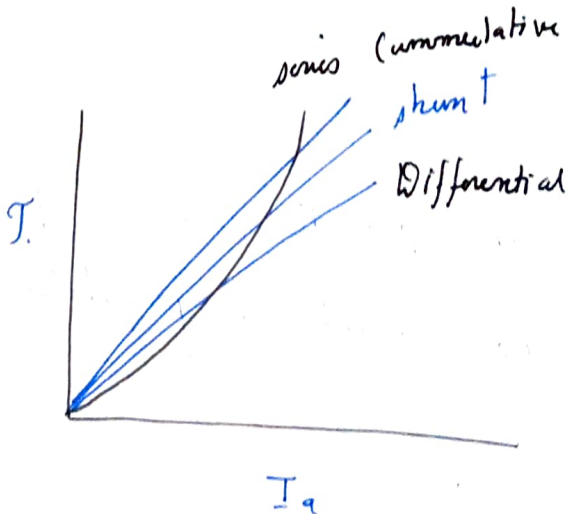 series Cummulative
shunt
Differential
T.
Ia